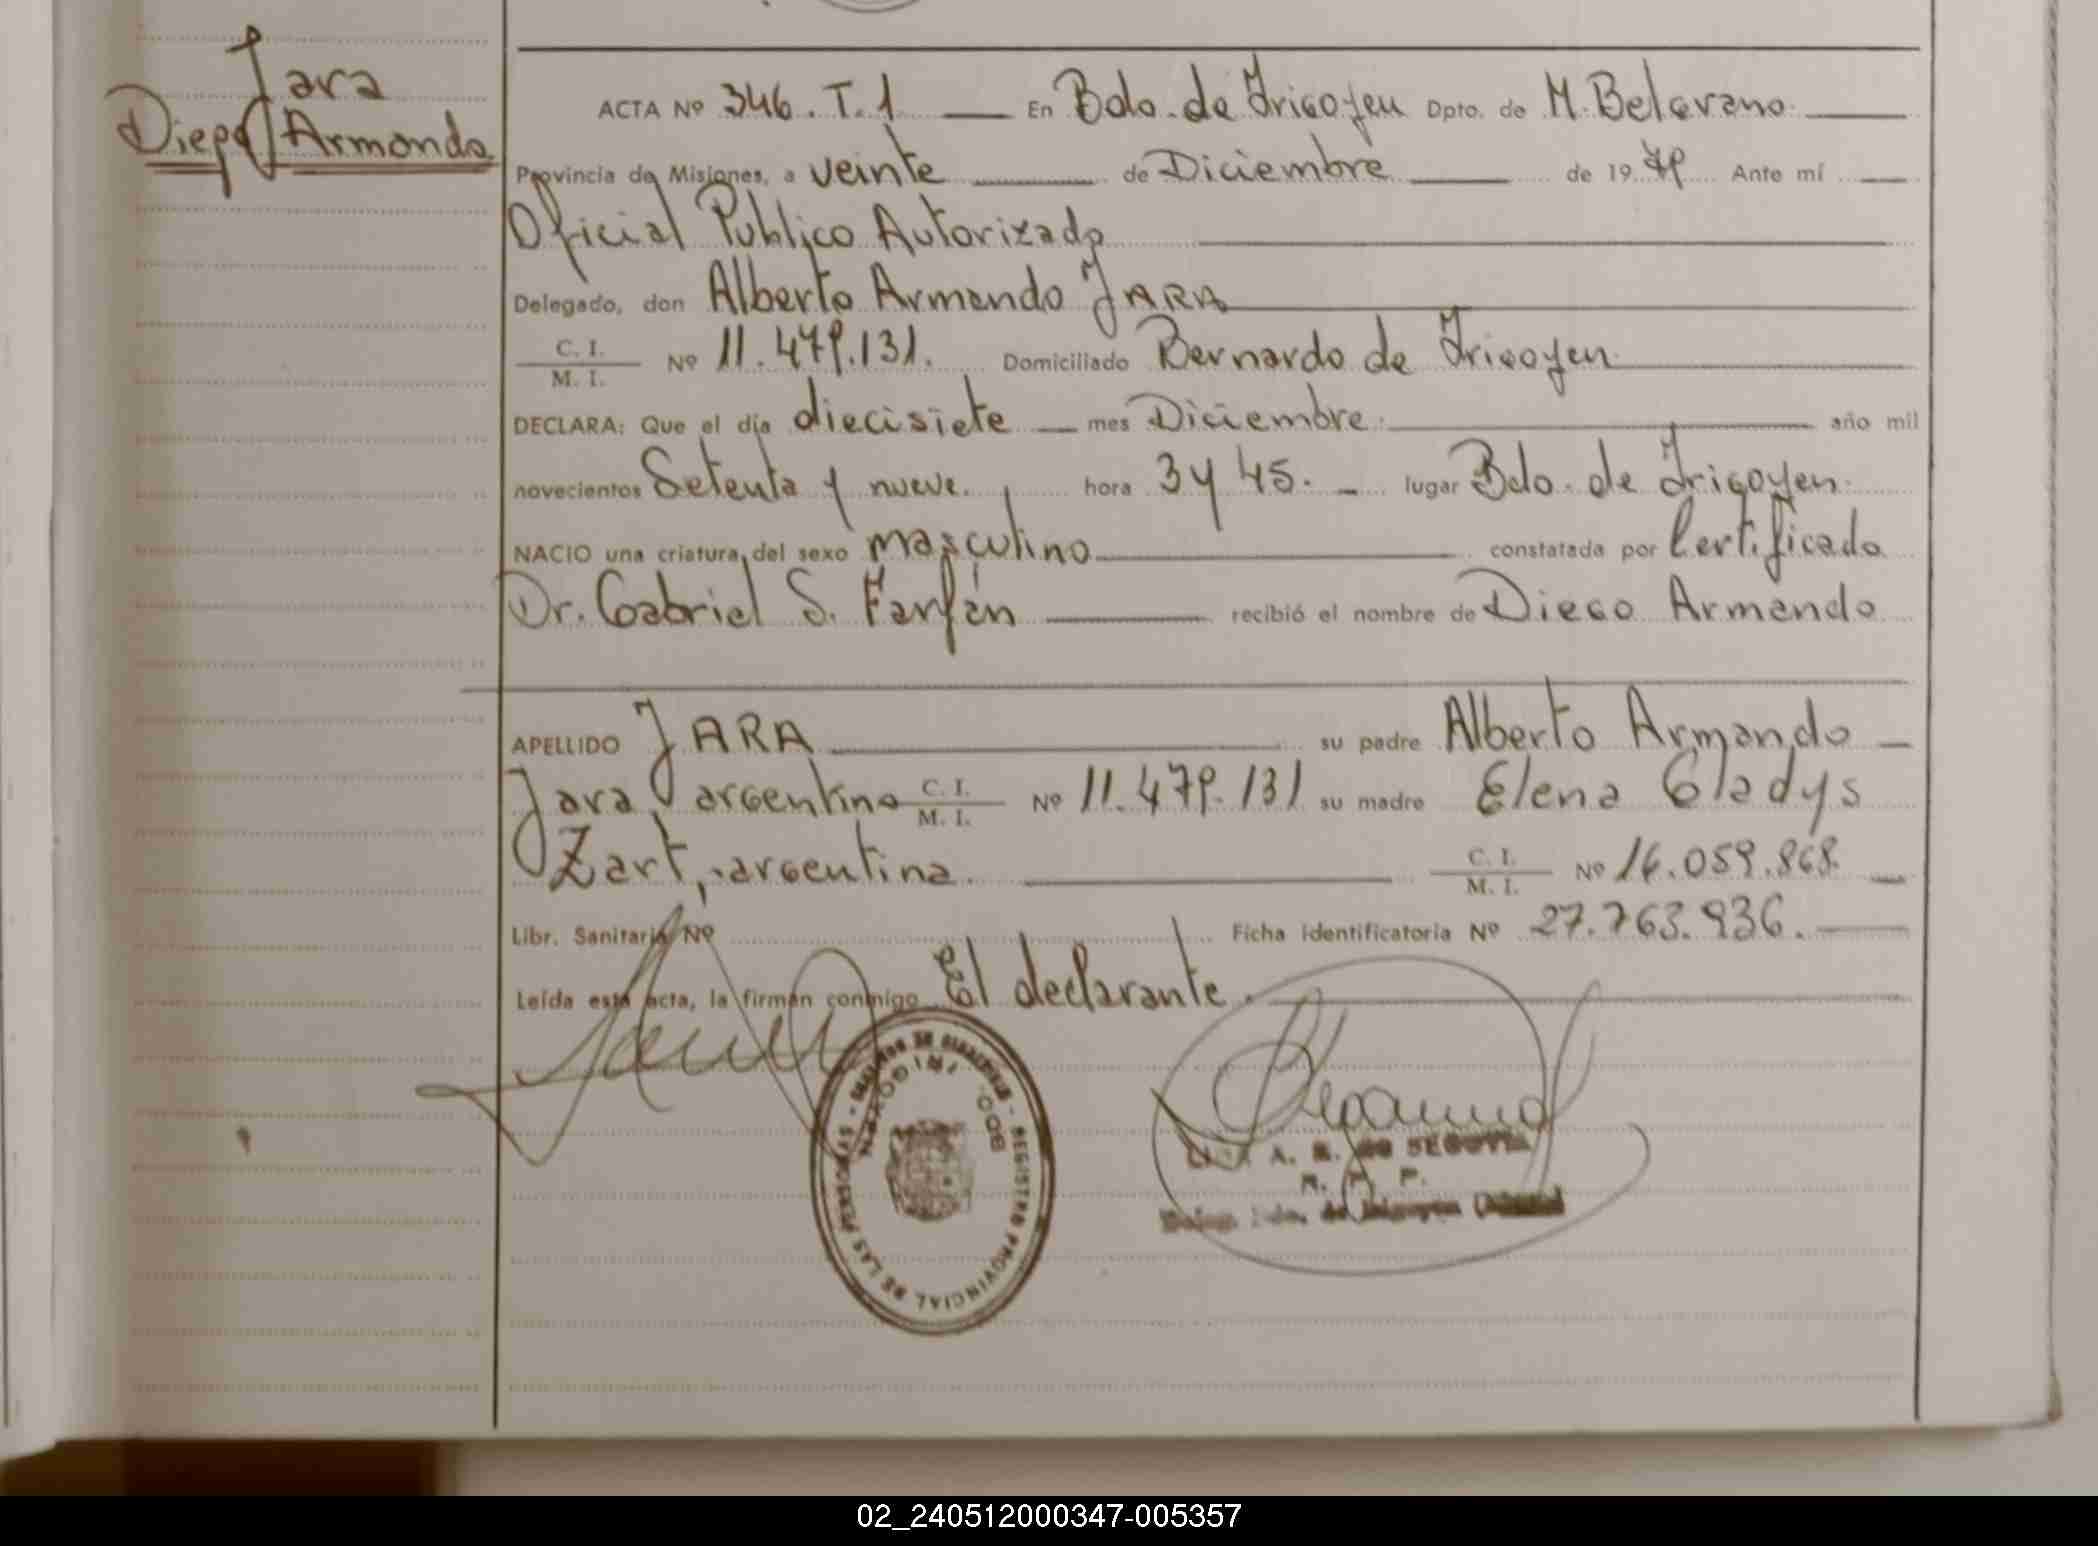 Jara
Diego Armando
ACTA Nº 346. T. 1 En Bdo. de Irigoyen Dpto. de M. Belgrano.
Provincia de Misiones, a veinte de Diciembre de 19 79 Ante mí
Oficial Publico Autorizado
Delegado, don Alberto Armando JARA
C. I. / M. I. Nº 11.479.131. Domiciliado Bernardo de Irigoyen.
DECLARA: Que el día diecisiete mes Diciembre. año mil
novecientos Setenta y nueve. hora 3 y 45. lugar Bdo. de Irigoyen.
NACIO una criatura del sexo masculino constatada por Certificado
Dr. Gabriel S. Farfán recibió el nombre de Diego Armando
APELLIDO JARA su padre Alberto Armando
Jara, argentino C. I. / M. I. Nº 11.479.131 su madre Elena Gladys
Zart, argentina. C. I. / M. I. Nº 16.059.868.
Libr. Sanitaria Nº Ficha identificatoria Nº 27.763.936.
Leída esta acta, la firman conmigo El declarante.
REGISTRO PROVINCIAL DE LAS PERSONAS
BDO. IRIGOYEN
A. R. DE SEGOVIA
02_240512000347-005357